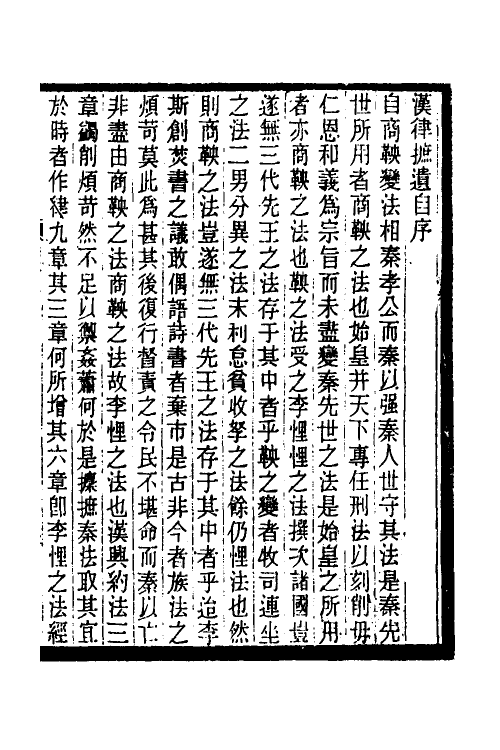 漢律摭遺自序
自商鞅變法相秦孝公而秦以强秦人世守其法是秦先
世所用者商鞅之法也始皇并天下專任刑法以刻削毋
仁恩和義為宗旨而未盡變秦先世之法是始皇之所用
者亦商鞅之法也鞅之法受之李悝悝之法撰次諸國豈
遂無三代先王之法存于其中者乎鞅之變者牧司連坐
之法二男分異之法末利怠貧收孥之法餘仍悝法也然
則商鞅之法豈遂無三代先王之法存于其中者乎迨李
斯創焚書之議敢偶語詩書者棄市是古非今者族法之
煩苛莫此為甚其後復行督責之令民不堪命而秦以亡
非盡由商鞅之法商鞅之法故李悝之法也漢興約法三
章蠲削煩苛然不足以禦姦蕭何於是攈摭秦法取其宜
於時者作律九章其三章何所增其六章卽李悝之法經